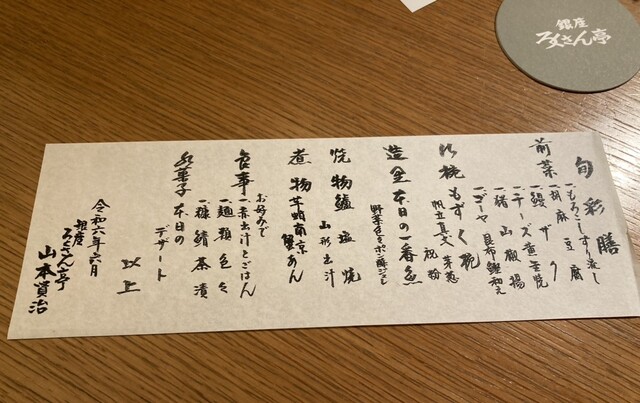 銀座
ろくさん亭
旬彩膳
前菜
一、もろこしすり流し
一、胡麻豆腐
一、鰻ザク
一、チーズ黄金焼
一、稚山椒揚
一、ゴーヤ昆布鰹和え
吸椀 もずく椀
帆立真丈 芽葱
祝粉
造里 本日の一番魚
野菜色々 ポン酢ジュレ
焼物 鱸塩焼
山形出汁
煮物 芋蛸南京
蟹あん
食事 お好みで
一、赤出汁とごはん
一、麺類色々
一、糠鯖茶漬
水菓子 本日の
デザート
以上
令和六年六月
銀座
ろくさん亭
山本賢治